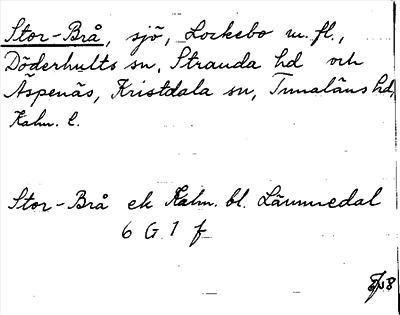 Stor-Brå, sjö, Lockebo m. fl.,
Döderhults sn, Stranda hd och
Äspenäs, Kristdala sn, Tunaläns hd,
Kalm. l.
Stor-Brå ek Kalm. bl. Lämmedal
6 G 7 f